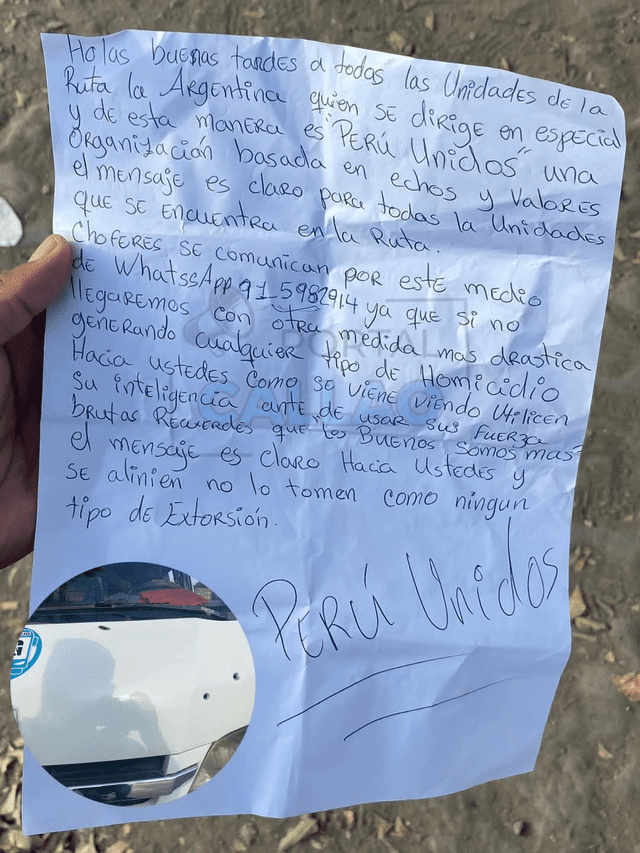 Holas buenas tardes a todas las Unidades de la
Ruta la Argentina quien se dirige en especial
y de esta manera es "PERÚ Unidos" una
Organización basada en echos y valores
el mensaje es claro para todas la Unidades
que se encuentra en la Ruta.
Choferes se comunican por este medio
de WhatssApp 915982914 ya que si no
llegaremos con otra medida mas drastica
generando cualquier tipo de Homicidio
Hacia ustedes como se viene viendo Utilicen
Su inteligencia ante de usar sus fuerza
brutas Recuerdes que los Buenos somos mas
el mensaje es claro Hacia Ustedes y
se alinien no lo tomen como ningun
tipo de Extorsión.
PERÚ Unidos
PORTAL
CALLAO